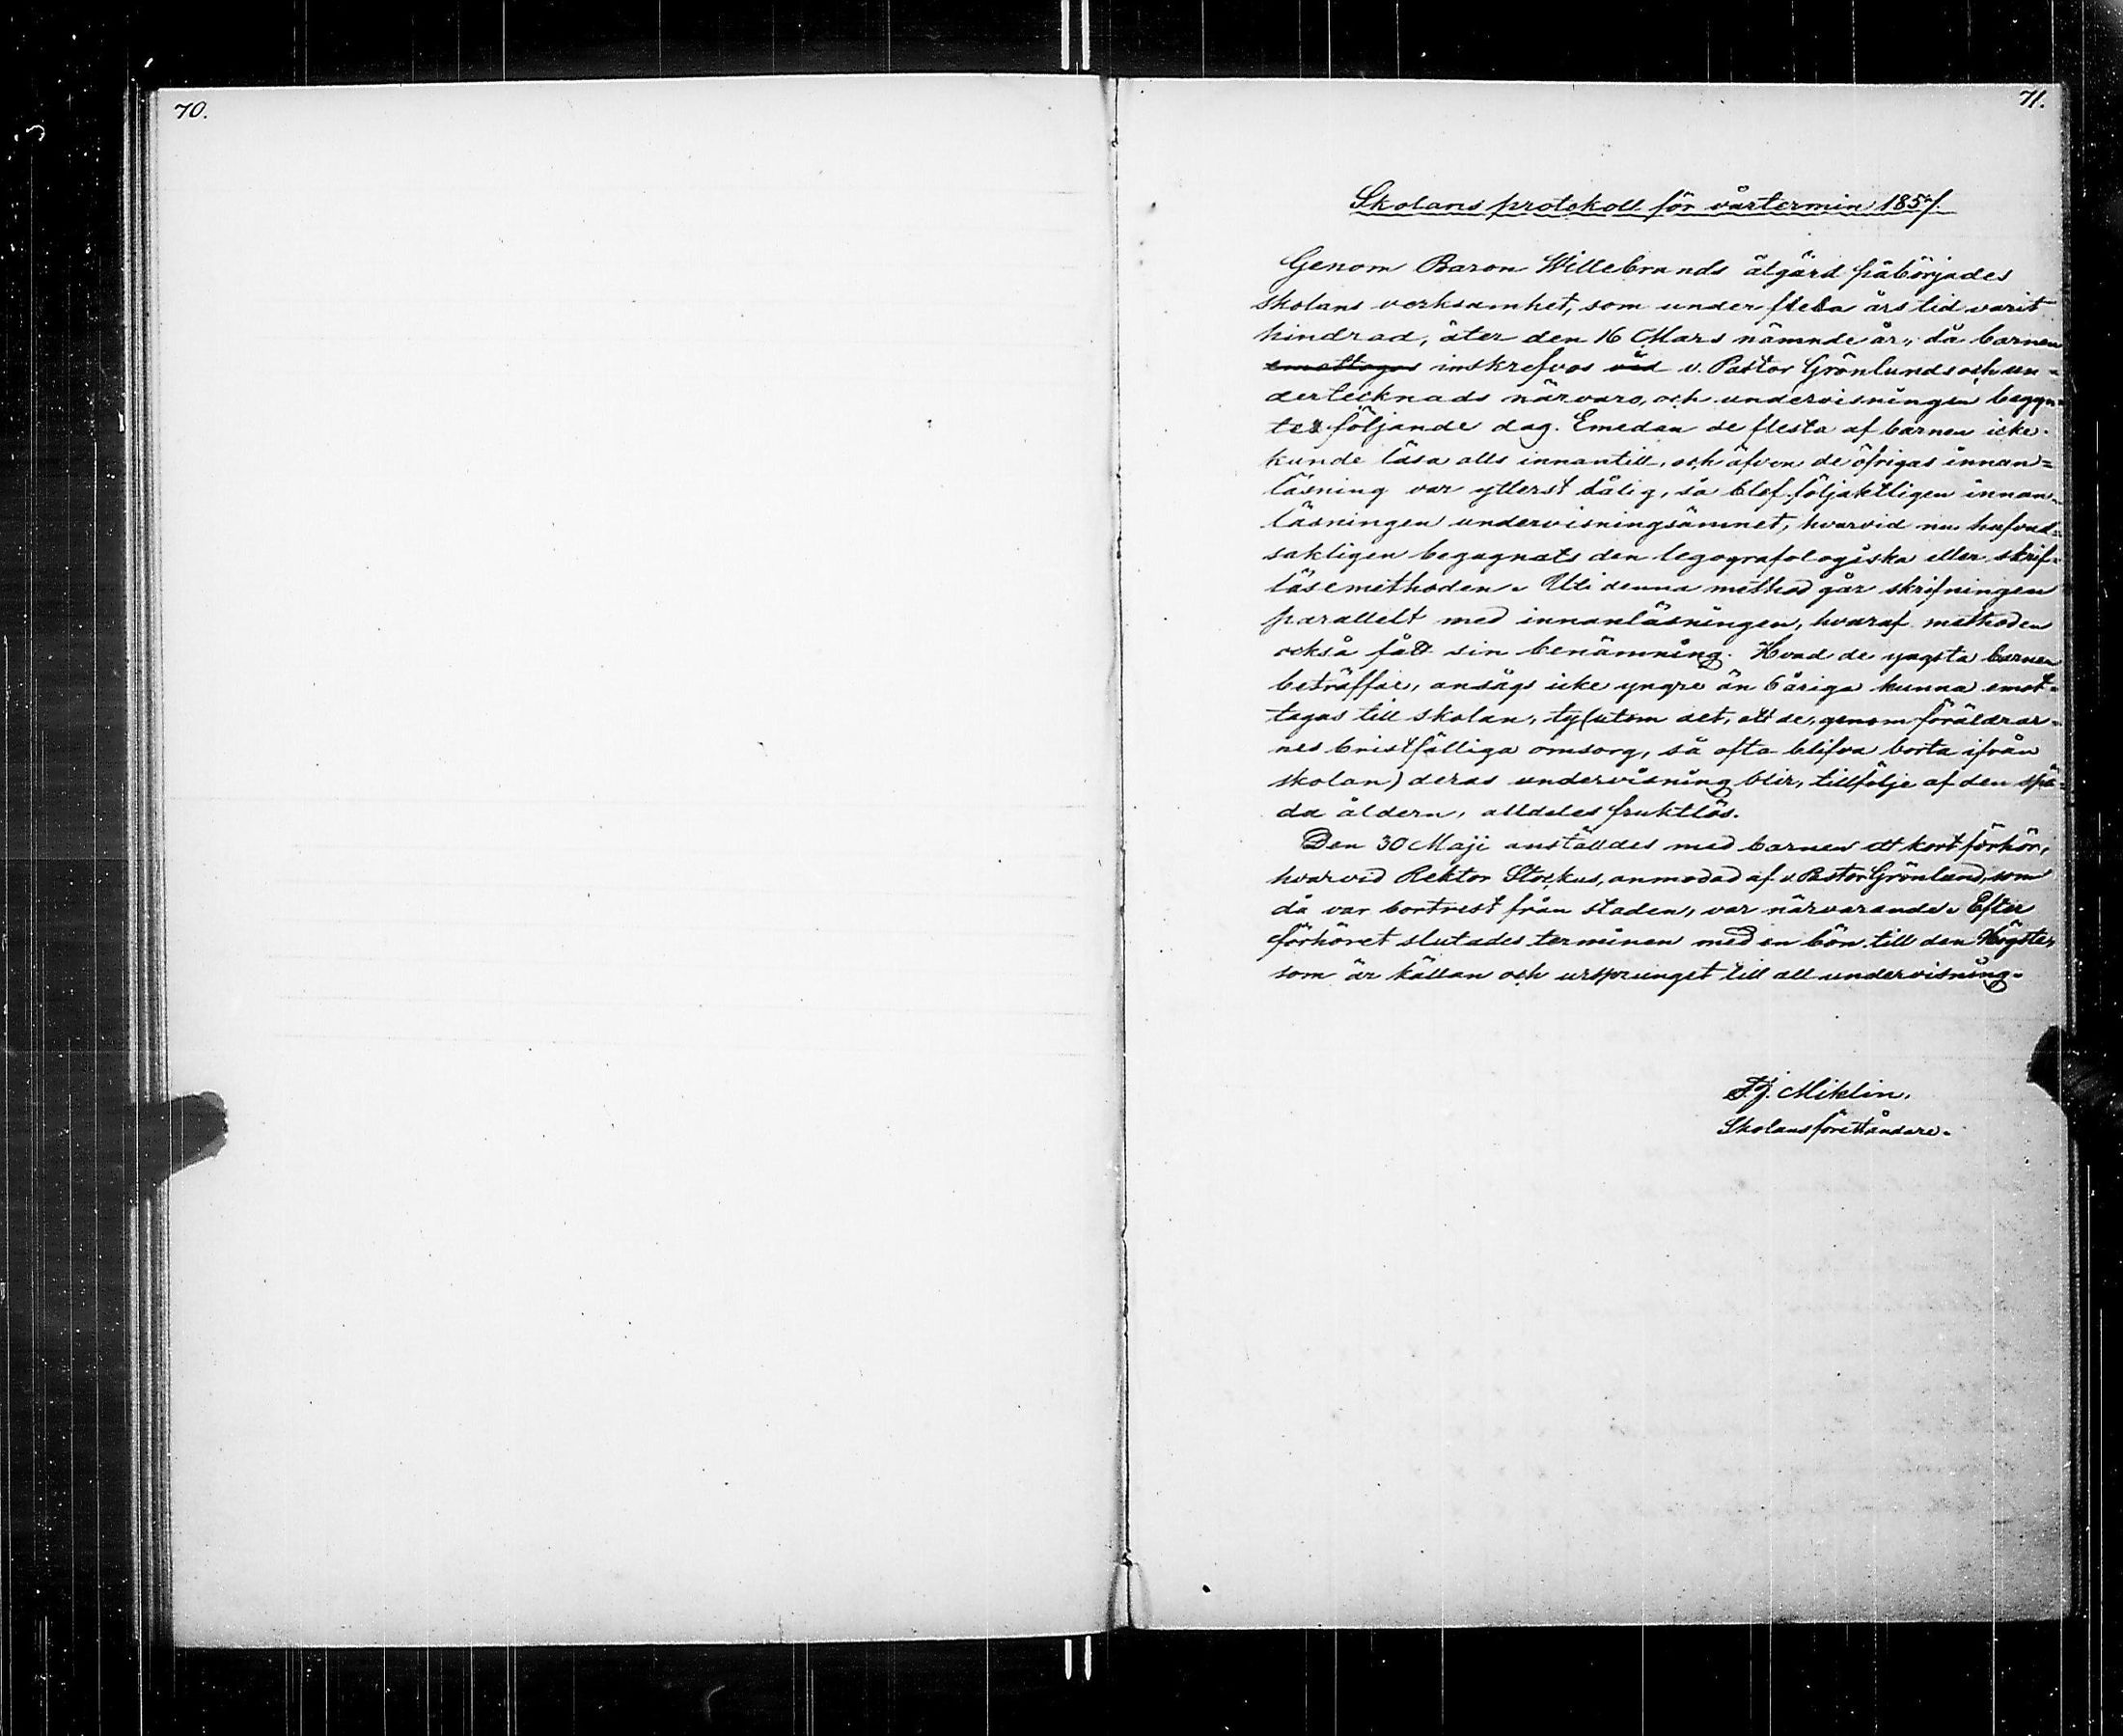 70.
71.
Skolans protokoll för vårtermin 1857.
Genom Baron Willebrands åtgärd påbörjades
skolans verksamhet, som under flera års tid varit
hindrad, åter den 16 Mars nämnde år, då barnen
emottogos inskrefvos vid v. Pastor Grönlunds och un-
dertecknads närvaro, och undervisningen begyn-
tes följande dag. Emedan de flesta af barnen icke
kunde läsa alls innantill, och äfven de öfrigas innan=
läsning var ytterst dålig, så blef följaktligen innan-
läsningen undervisningsämnet, hvarvid nu hufvud-
sakligen begagnats den legografologiska eller skrif-
läsemethoden. Uti denna method går skrifningen
parallelt med innanläsningen, hvaraf methoden
också fått sin benämning. Hvad de yngsta barnen
beträffar, ansågs icke yngre än 6 åriga kunna emot-
tagas till skolan, ty (utom det, att de, genom föräldrar-
nes bristfälliga omsorg, så ofta blifva borta ifrån
skolan) deras undervisning blir, tillfölje af den spä-
da åldern, alldeles fruktlös.
Den 30 Maji anställdes med barnen ett kort förhör,
hvarvid Rektor Stockus, anmodad af v. Pastor Grönlund, som
då var bortrest från staden, var närvarande. Efter
förhöret slutades terminen med en bön till den Högste,
som är källan och ursprunget till all undervisning.
Miklin.
Skolans föreståndare.